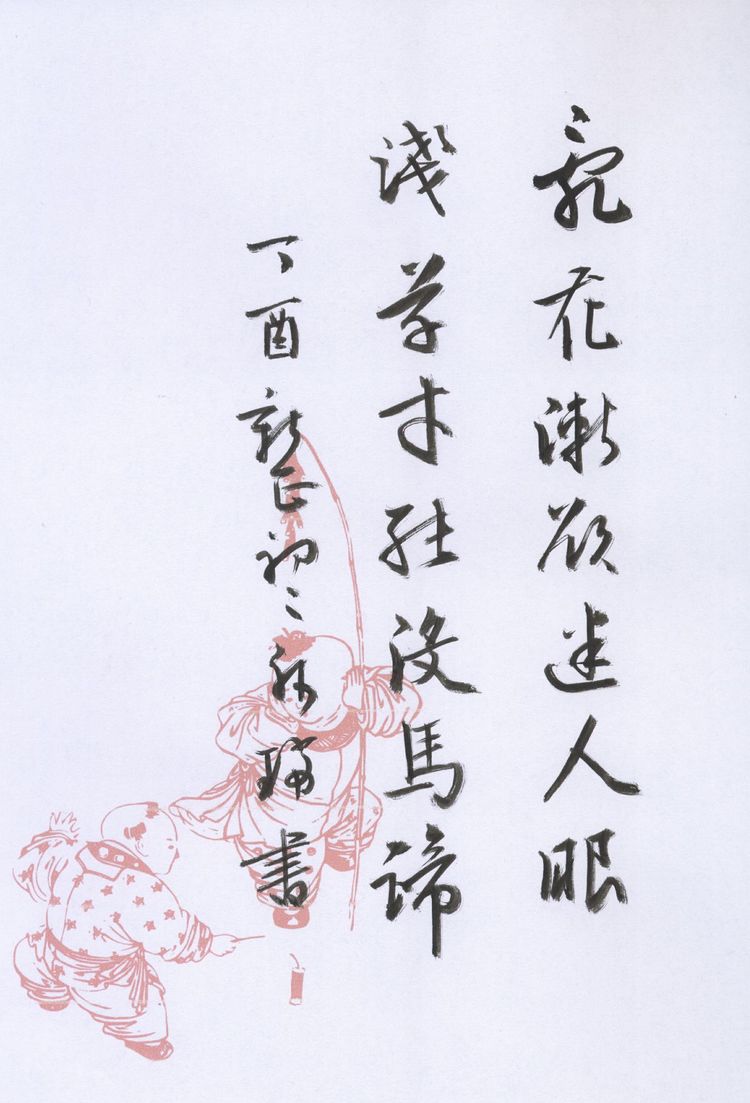 亂花漸欲迷人眼
淺草才能沒馬蹄
丁酉新正初二書